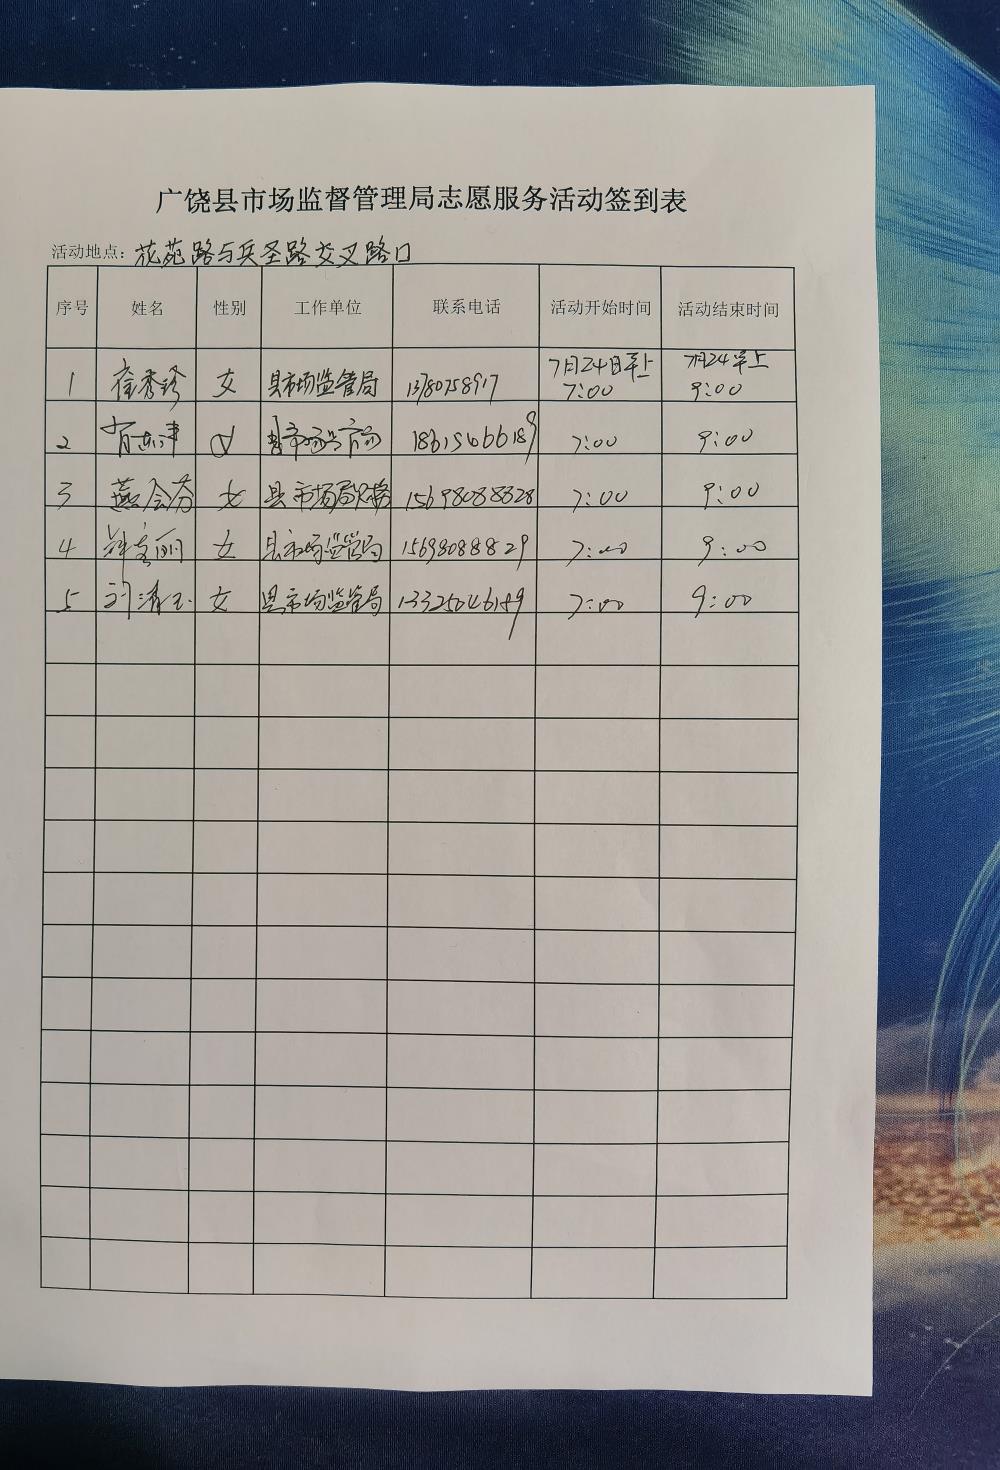 广饶县市场监督管理局志愿服务活动签到表
活动地点：花苑路与兵圣路交叉路口
序号 姓名 性别 工作单位 联系电话 活动开始时间 活动结束时间
7月24日早上 7月24早上
1 秀珍 女 县市场监管局 13780758917 7:00 9:00
2 女 18615466189 7:00 9:00
3 燕会芬 女 县市场局 15698088828 7:00 9:00
4 丽 女 县市场监管局 15698088829 7:00 9:00
5 刘清玉 女 县市场监管局 13325046189 7:00 9:00